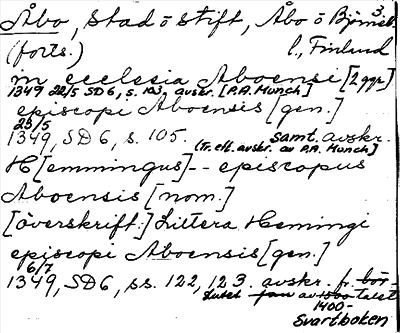 Åbo, Stad o Stift, Åbo o Björneb. 3.
(forts.) l., Finland
m ecclesia Aboensi [2 ggr]
1349 22/5 SD 6, s. 103, avskr. [P.A. Munch]
episcopi Aboensis [gen.]
23/5
1349, SD 6, s. 105. samt. avskr.
(Tr. eft. avskr. av P.A. Munch]
H[emmingus] -- episcopus
Aboensis [nom.]
[överskrift:] Littera Hemingi
episcopi Aboensis [gen.]
6/7
1349, SD 6, ss. 122, 123. avskr. fr. bör-
slutet av 1300-talet
1400-
Svartboken